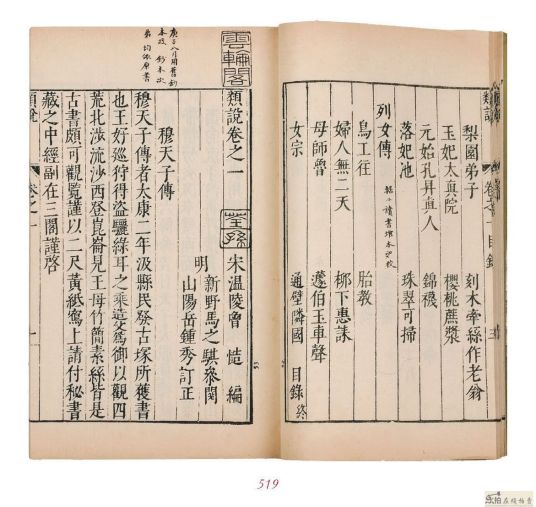 梨園弟子 刻木牽絲作老翁
玉妃太真院 櫻桃蔗漿
元始孔昇真人 錦襪
落妃池 珠翠可掃
列女傳
鳥工往 胎教
婦人無二天 柳下惠誄
母師魯 蘧伯玉車聲
女宗 通壁隣國 目錄終
類說
目錄
雲輪閣
荃孫
類說卷之一
宋温陵曾慥編
明
新野馬之騏叅閱
山陽岳鍾秀訂正
穆天子傳
穆天子傳者太康二年汲縣民發古塚所獲書
也王好巡狩得盜驪綠耳之乘造父爲御以觀四
荒北渉流沙西登崑崙見王母竹簡素絲皆是
古書頗可觀覧謹以二尺黃紙寫上請付秘書
藏之中經副在三閣謹啓
類說 卷之一 一
519